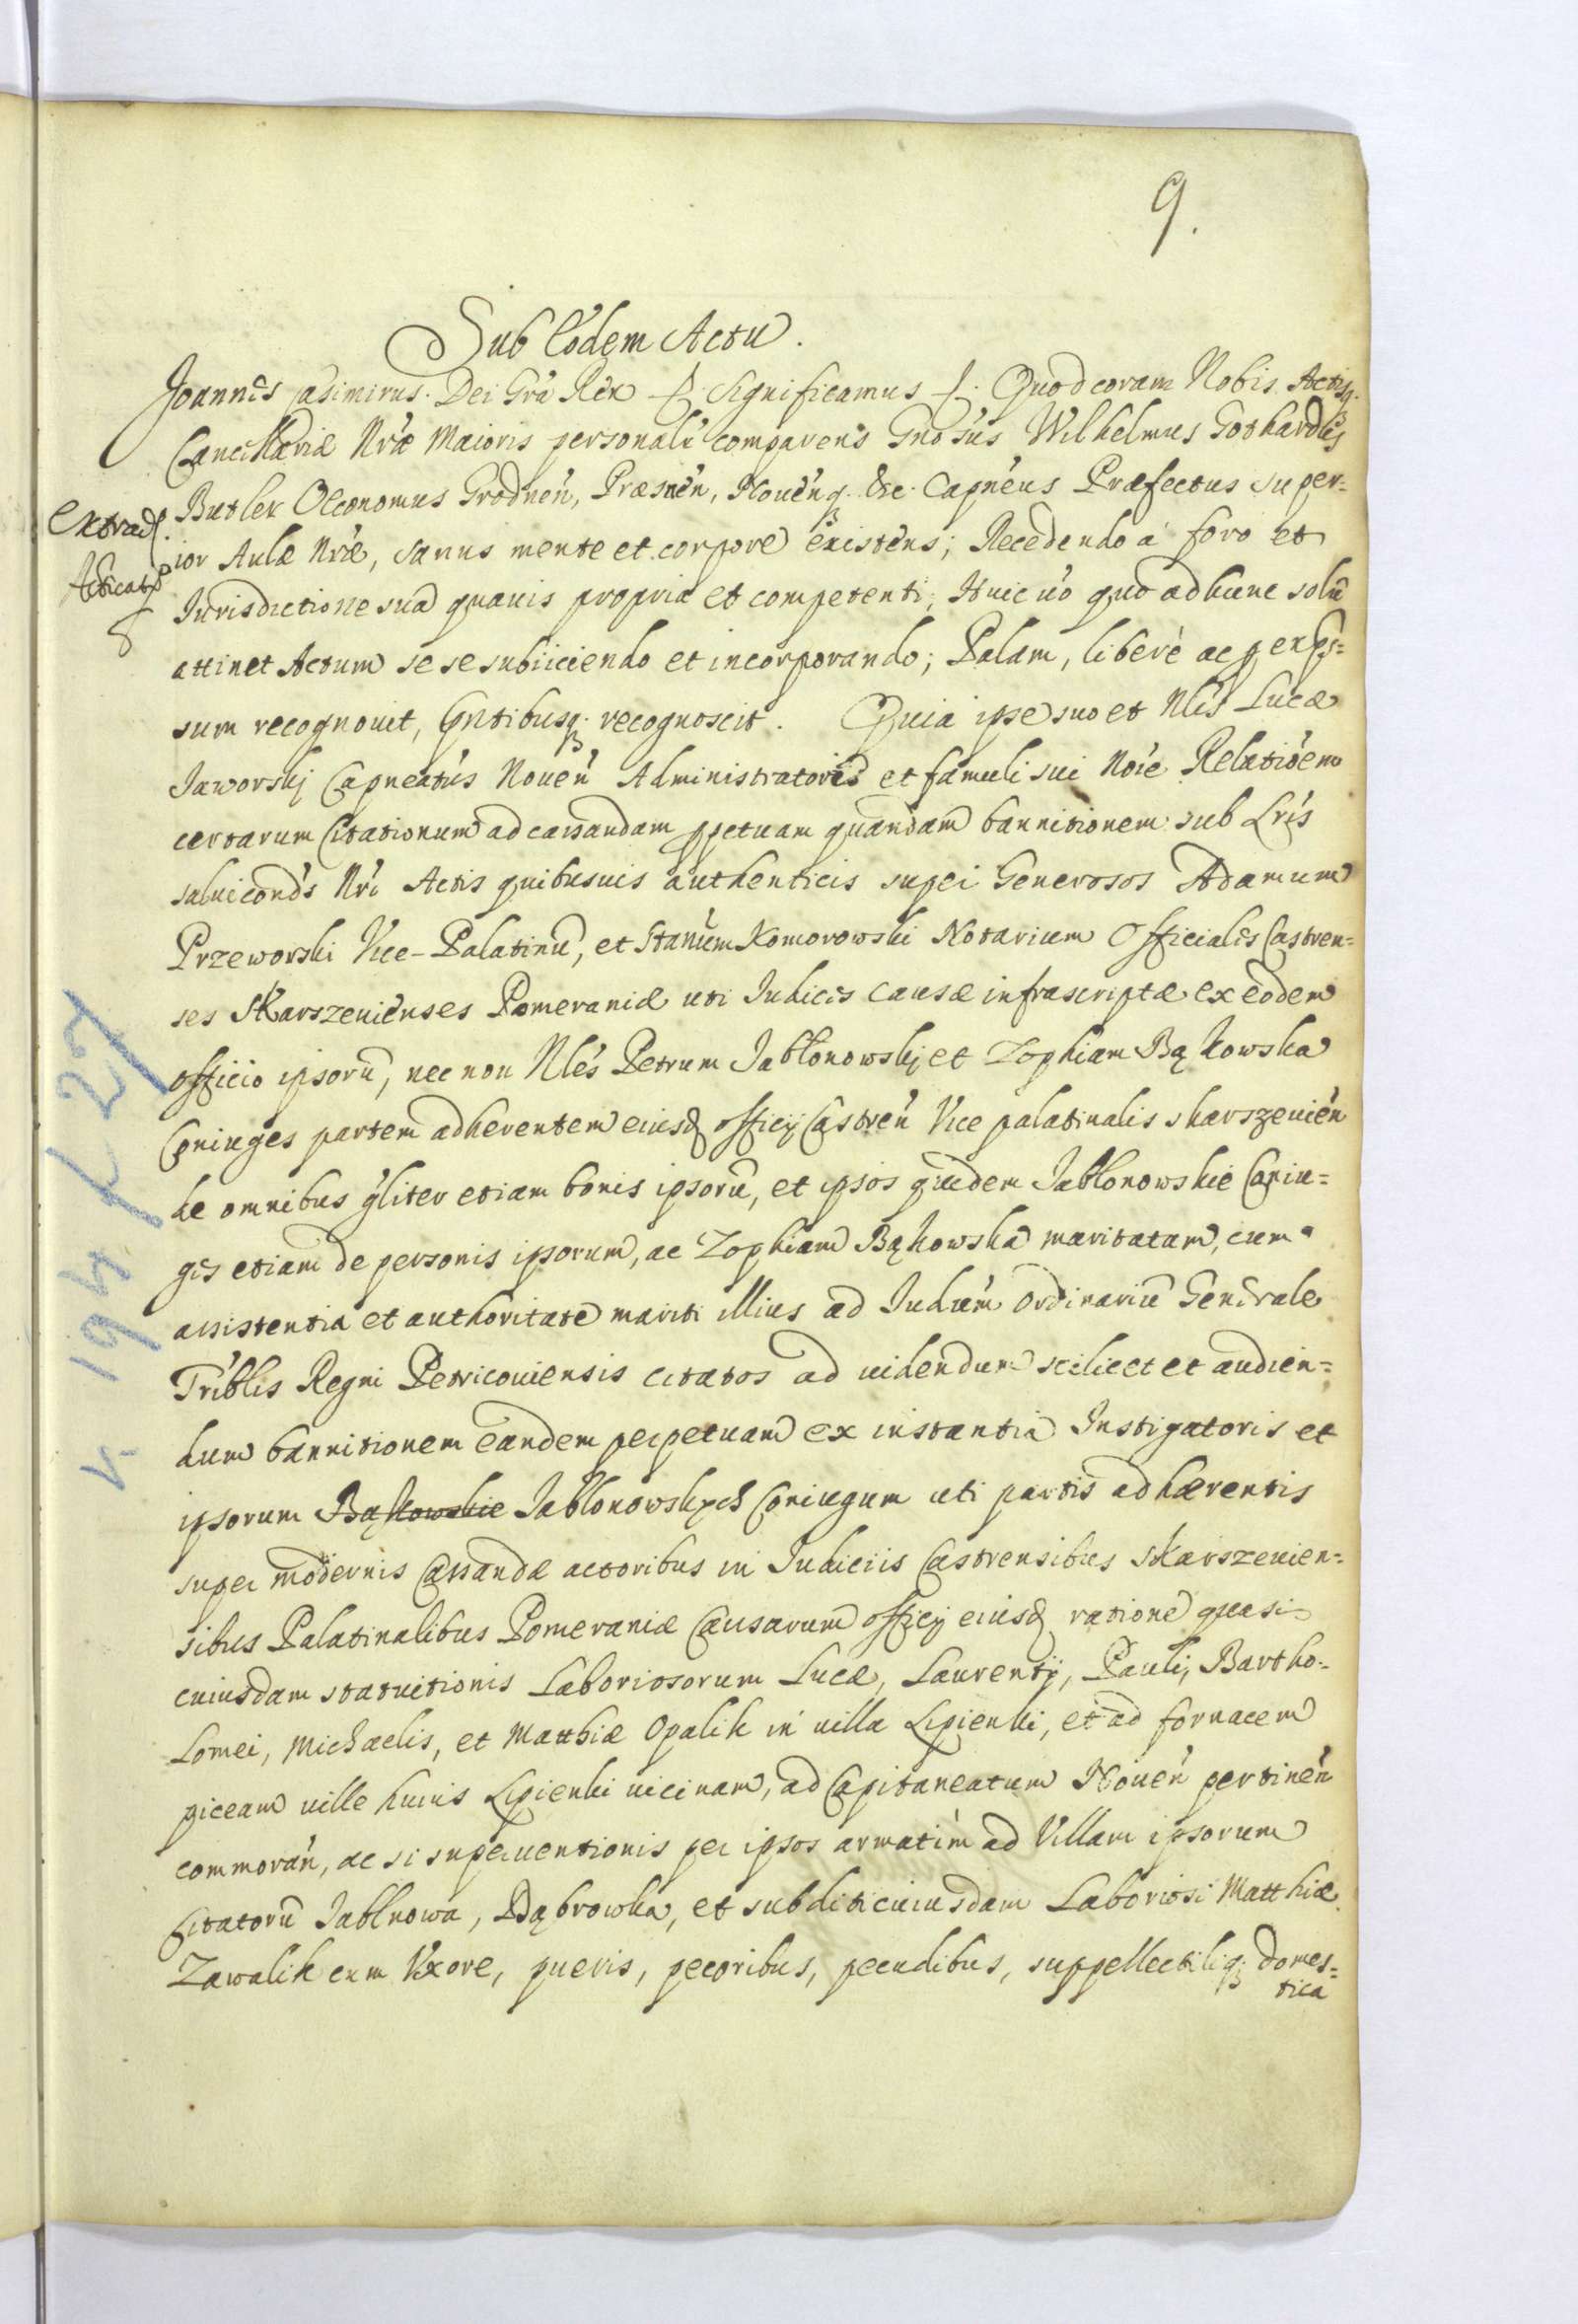 9.
Sub Eodem Actu.
Joannes Casimirus. Dei Grâ Rex Significamus Quod coram Nobis Actisq.
Cancellariæ Nr̃æ Maioris personalr̃ comparens Gnõsus Wilhelmus Gothardus
Butler Œconomus Grodneñ, Præsneñ, Noueñq. &c. Capneus Præfectus super-
Extrad.
ior Aulæ Nr̃æ, sanus mente et corpore existens; Recedendo à foro et
Acticat
Jurisdictione sua quauis propria et competenti, Huic uo quo ad hunc solũ
attinet Actum se se subiiciendo et incorporando; Palam, liberè ac p exps-
sum recognouit, Gntibusq. recognoscit. Quia ipse suo et Nlis Lucæ
Jaworskj Capneatus Noueñ Administratoris et famuli sui Noïe Relatiõem
certarum Citationum ad cassandam ppetuam quandam bannitionem sub Lr̃is
salui cond̃s Nr̃i Actis quibusuis authenticis super Generosos Adamum
Przeworski Vice-Palatinũ, et Stanũm Komorowski Notarium Officiales Castren-
ses Skarszeuienses Pomeraniæ uti Judices causæ infrascriptæ ex eodem
officio ipsorũ, nec non Nlés Petrum Jabłonowskj et Zophiam Bąkowska
Coniuges partem adherentem eiusd officij Castreñ Vice palatinalis skarszeuieñ
de omnibus gliter etiam bonis ipsorũ, et ipsos quidem Jabłonowskie Coniu-
ges etiam de personis ipsorum, ac Zophiam Bąkowska maritatam, cum
assistentia et authoritate mariti illius ad Judium ordinariũ Generale
Tribl̃is Regni Petricouiensis citatos ad uidendum scilicet et audien-
dum bannitionem eandem perpetuam ex instantia Instigatoris et
ipsorum Bąkowskie Jabłonowskych Coniugum uti partis adhærentis
super modernis Cassandæ actoribus in Judiciis Castrensibus Skarszeuien-
sibus Palatinalibus Pomeraniæ Causarum officij eiusd ratione quasi
cuiusdam statuitionis Laboriosorum Lucæ, Laurentij, Pauli, Bartho-
lomei, Michaelis, et Matthiæ Opalik in uilla Lipienki, et ad fornacem
piceam uille huius Lipienki uicinam, ad Capitaneatum Noueñ pertineñ
commorañ, ac si superuentionis per ipsos armatim ad Villam ipsorum
Citatorũ Jabłnowa, Dąbrowka, et subditi cuiusdam Laboriosi Matthiæ
Zawalik cum Vxore, pueris, pecoribus, pecudibus, suppellectiliq. domes-
tica